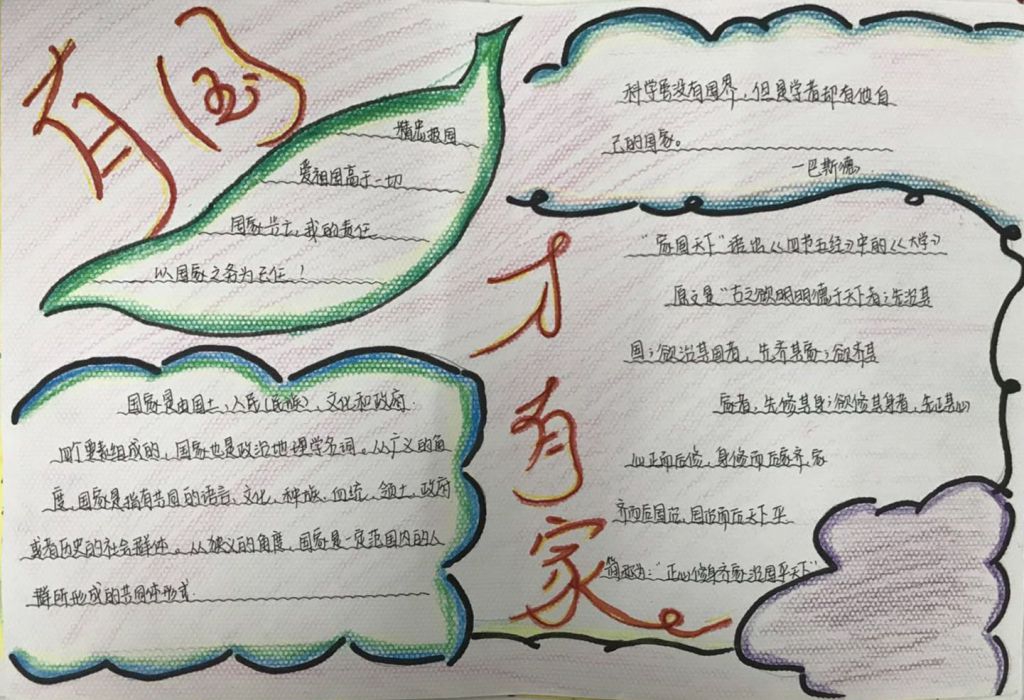 有国
才有家
精忠报国
爱祖国高于一切
国家兴亡,我的责任
以国家之务为己任!
科学虽没有国界,但是学者却有他自
己的国家。
—巴斯德
国家是由国土、人民(民族)、文化和政府
四个要素组成的,国家也是政治地理学名词。从广义的角
度,国家是指有共同的语言、文化、种族、血统、领土、政府
或者历史的社会群体。从狭义的角度,国家是一定范围内的人
群所形成的共同体形式
"家国天下"语出《四书五经》中的《大学》
原文是"古之欲明明德于天下者;先治其
国;欲治其国者,先齐其家;欲齐其
家者,先修其身;欲修其身者,先正其心
心正而后修,身修而后家齐,家
齐而后国治,国治而后天下平
简称为:"正心修身齐家治国平天下"